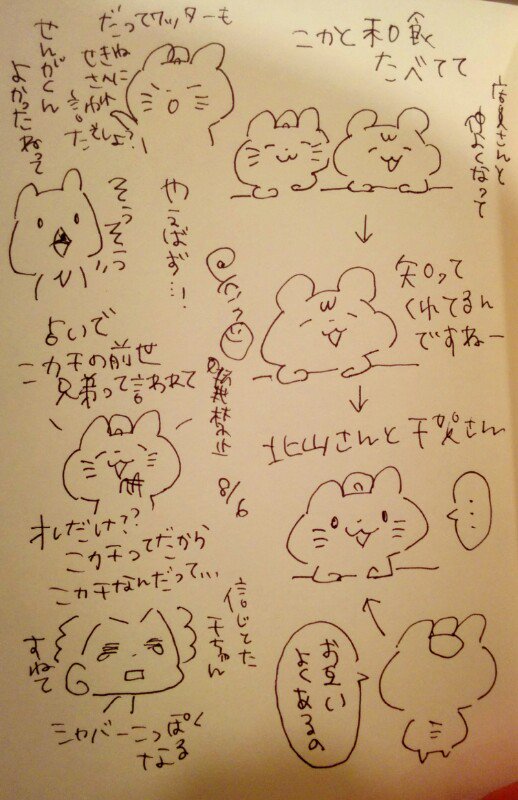 こかと和食
たべてて
店員さんと
なかよくなって
知って
くれてるん
ですねー
北山さんと千賀さん
…
お互い
よくあるの
だってワッターも
せきねに
さんが
って
言った
でしょ?
せんがくん
よかったねって
そうっそうっ
やえばず…!
8/6
よいで
ニカチの前世
兄弟って言われて
オレだけ??
ニカチってだから
ニカチなんだって…
信じてた
千ちゃん
すねて
シャバーニっぽく
なる